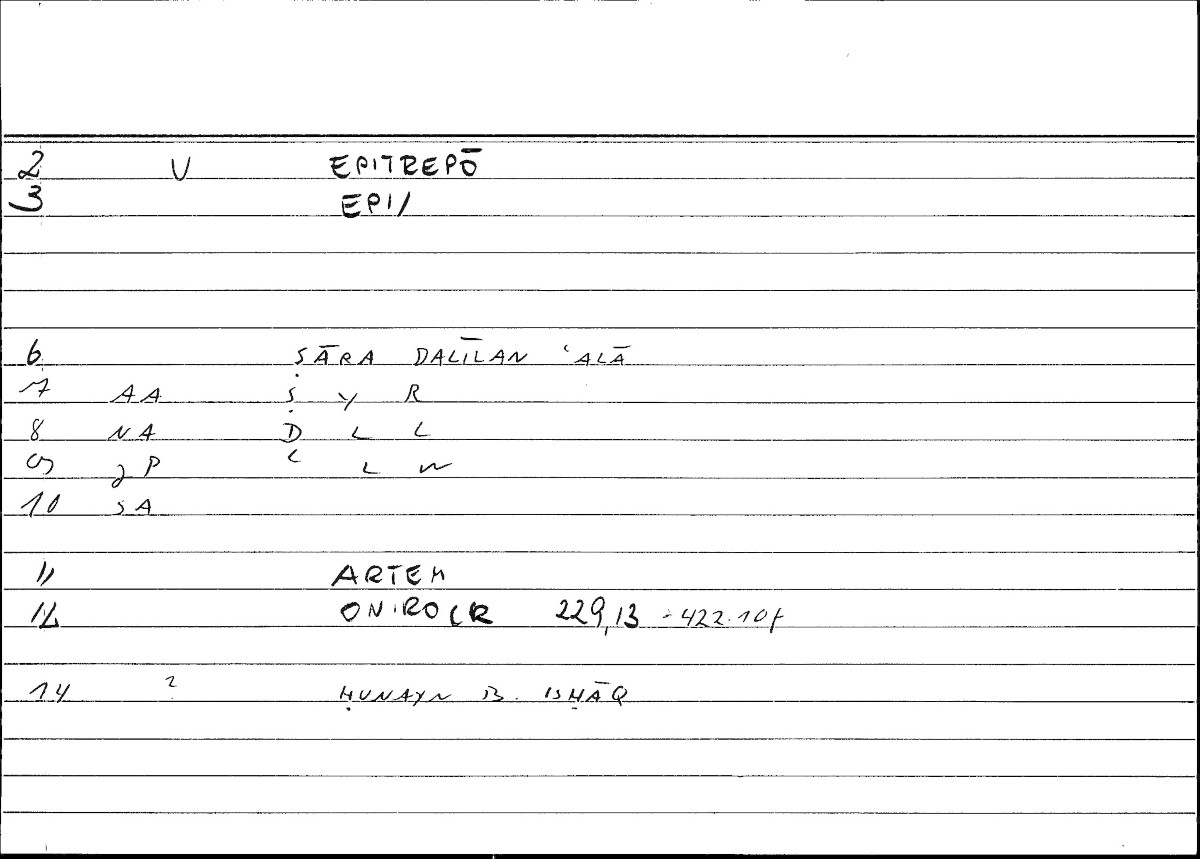 2 V EPITREPŌ
3 EPI/
6 ṢĀRA DALĪLAN ʿALĀ
7 AA Ṣ Y R
8 NA D L L
9 JP ʿ L W
10 SA
11 ARTEM
12 ONIROCR 229,13 - 422.10f
14 ? ḤUNAYN B. ISḤĀQ